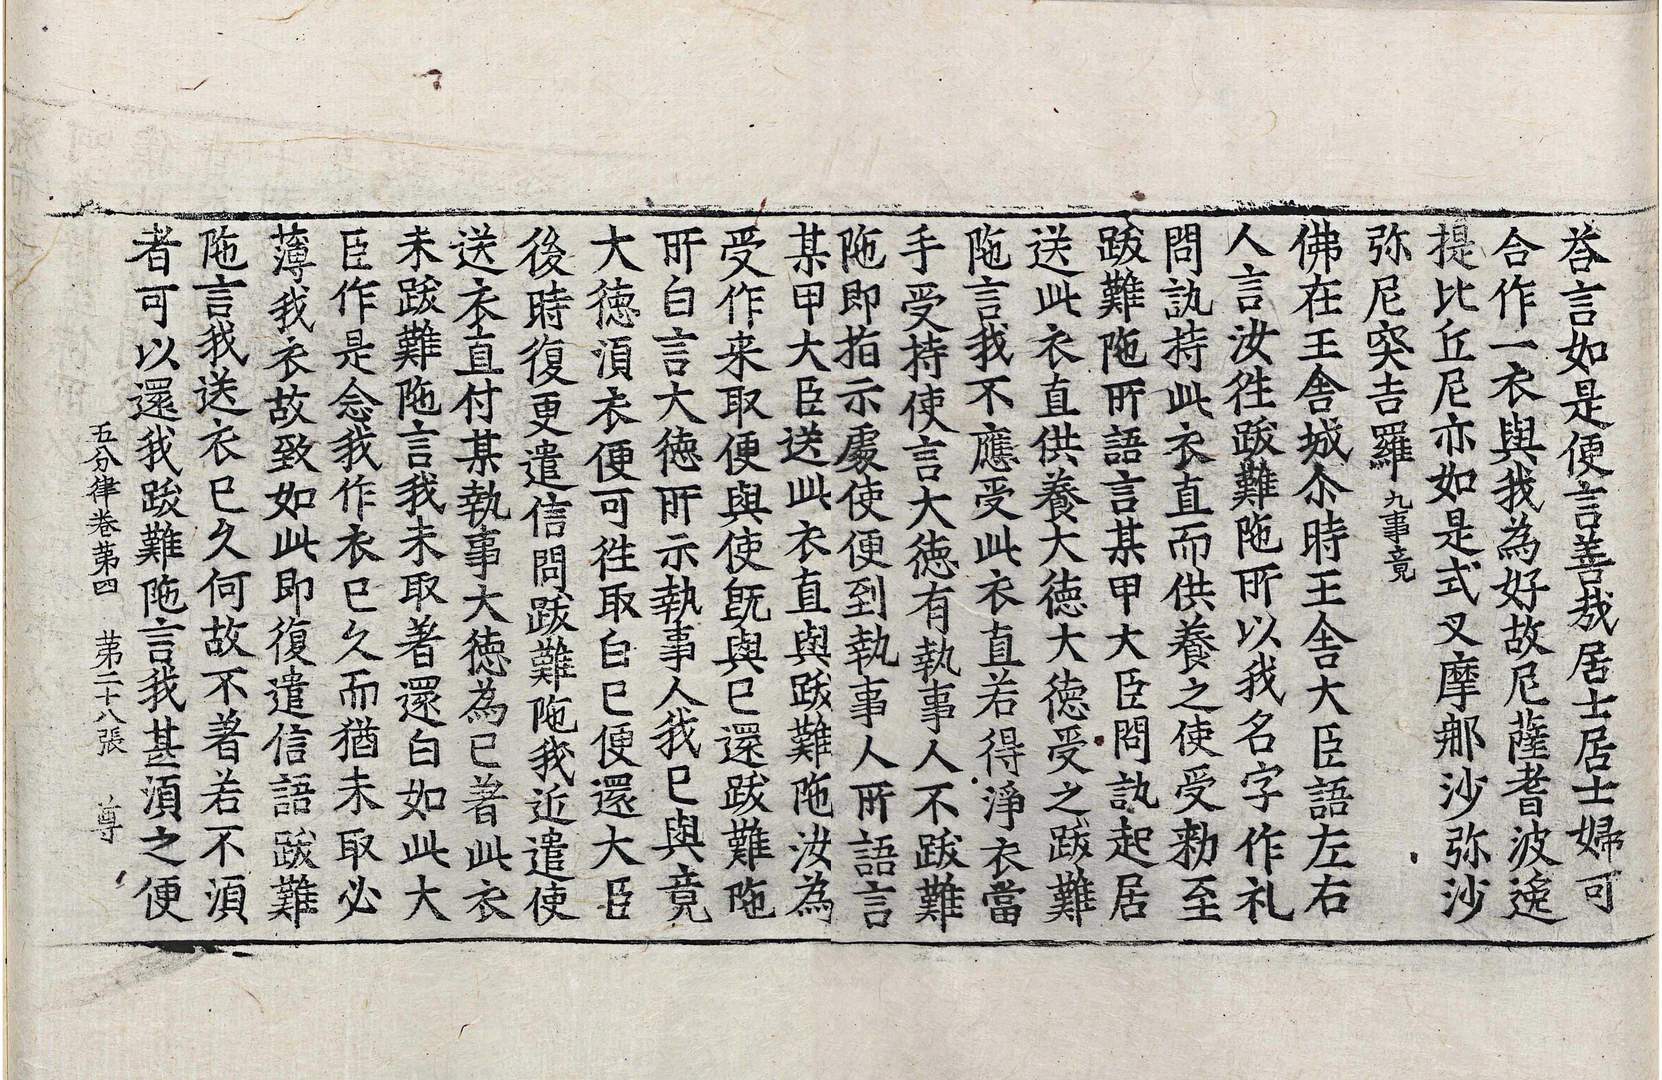 荅言如是便言善㢤居士居士婦可
合作一衣與我為好故尼薩耆波逸
提比丘尼亦如是式叉摩𨚗沙弥沙
弥尼突吉羅九事竟
佛在王舍城尒時王舍大臣語左右
人言汝徃跋難陁所以我名字作礼
問訊持此衣直而供養之使受勑至
跋難陁所語言某甲大臣問訊起居
送此衣直供養大徳大徳受之跋難
陁言我不應受此衣直若得淨衣當
手受持使言大徳有執事人不跋難
陁即指示䖏使便到執事人所語言
某甲大臣送此衣直與跋難陁汝為
受作来取便與使旣與已還跋難陁
所白言大徳所示執事人我已與竟
大徳湏衣便可徃取白已便還大臣
後時復更遣信問跋難陁我近遣使
送衣直付某執事大徳為已著此衣
未跋難陁言我未取著還白如此大
臣作是念我作衣已久而猶未取必
薄我衣故致如此即復遣信語跋難
陁言我送衣已久何故不著若不湏
者可以還我跋難陁言我甚湏之便
五分律卷第四　苐二十八張　尊